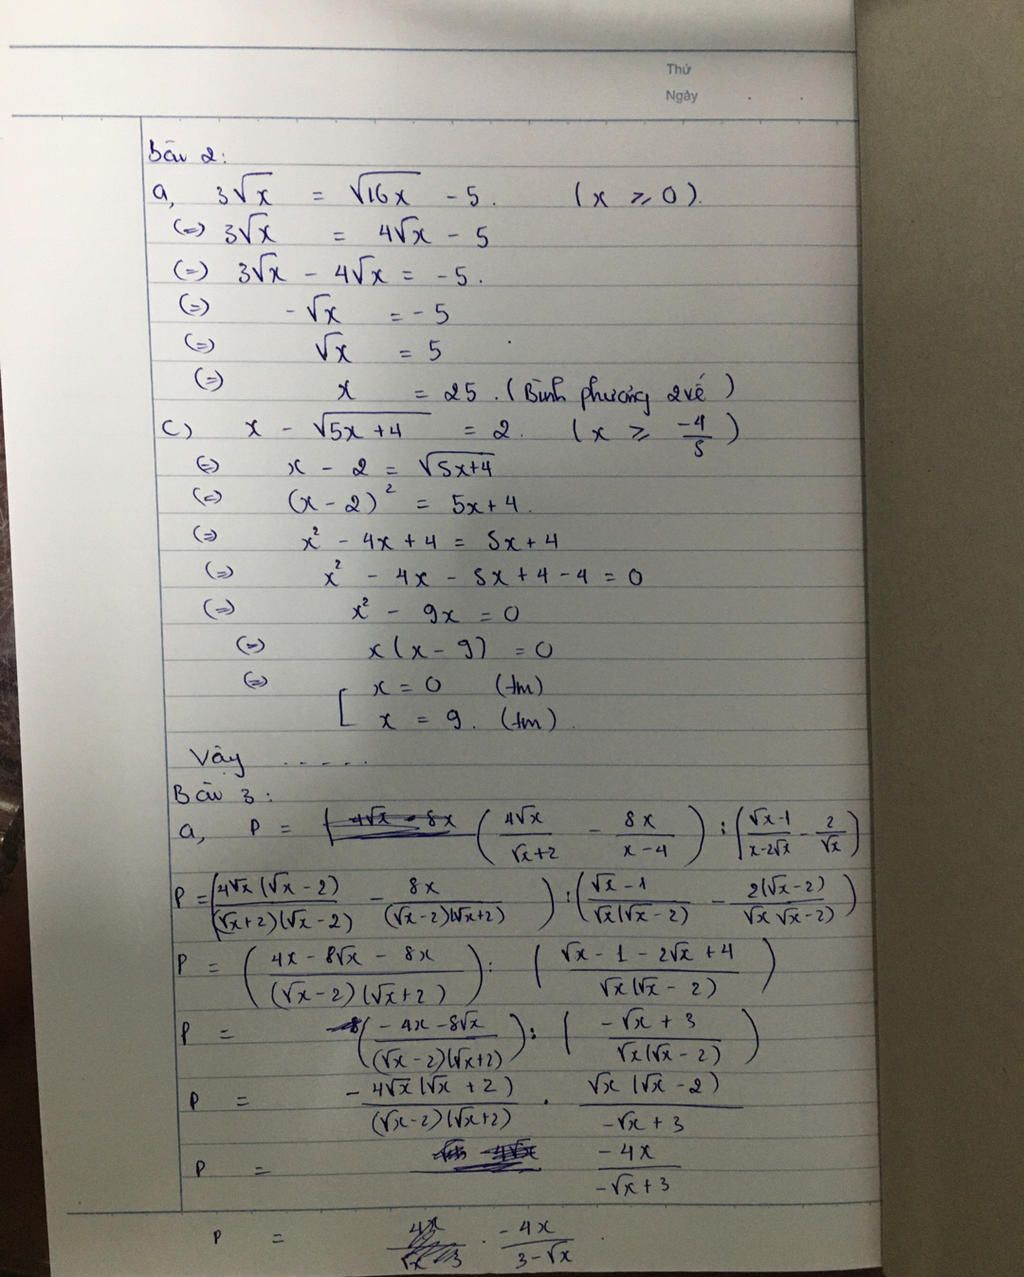 Thứ
Ngày
Bài 2:
a, 3√x = √16x - 5. (x ⩾ 0).
(=) 3√x = 4√x - 5
(=) 3√x - 4√x = -5.
(=) -√x = -5
(=) √x = 5
(=) x = 25. (Bình phương 2 vế)
c) x - √(5x+4) = 2. (x ⩾ -4/5)
(=) x - 2 = √(5x+4)
(=) (x-2)² = 5x+4.
(=) x² - 4x + 4 = 5x+4
(=) x² - 4x - 5x + 4 - 4 = 0
(=) x² - 9x = 0
(=) x(x-9) = 0
(=) [ x = 0 (tm)
x = 9. (tm).
Vậy .....
Bài 3:
a, P = (4√x/(√x+2) - 8x/(x-4)) : ((√x-1)/(x-2√x) - 2/√x)
P = (4√x(√x-2)/((√x+2)(√x-2)) - 8x/((√x-2)(√x+2))) : ((√x-1)/(√x(√x-2)) - 2(√x-2)/(√x √x-2))
P = ((4x-8√x-8x)/((√x-2)(√x+2))) : ((√x-1-2√x+4)/(√x(√x-2)))
P = ((-4x-8√x)/((√x-2)(√x+2))) : ((-√x+3)/(√x(√x-2)))
P = -4√x(√x+2)/((√x-2)(√x+2)) . √x(√x-2)/(-√x+3)
P = -4x/(-√x+3)
P = . -4x/(3-√x).